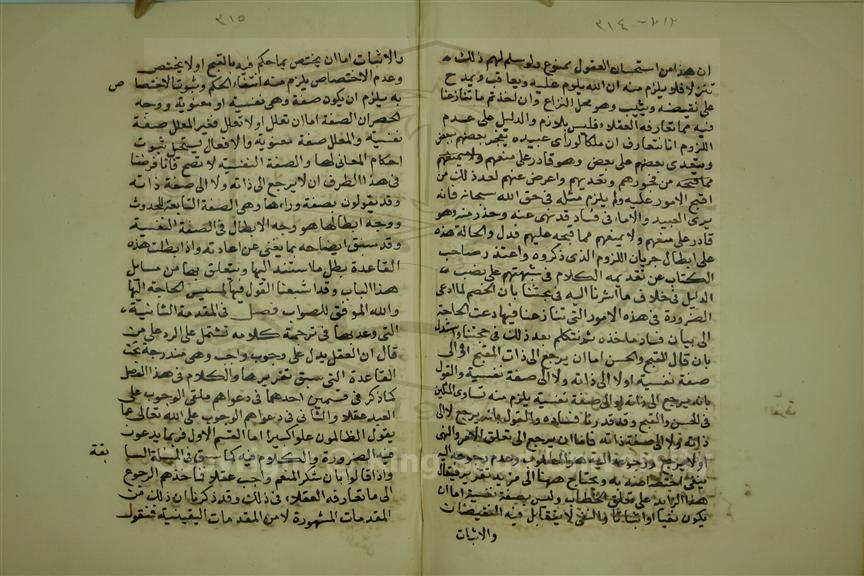 ٣١٤
ان هذا من استحسان العقول ممنوع ولو سلم لهم ذلك
تنزلا فلا يلزم منه ان الله يلوم عليه ويعاقب ويمدح
على نقيضه ويثيب وهو محل النزاع وان اخذتم ما تنازعنا
فيه مما تعارفه العقلاء فليس بلازم والدليل على عدم
اللزوم انا نتعارف ان ملكا لو رأى عبيده يفجر بعضهم ببعض
ويتعدى بعضهم على بعض وهو قادر على منعهم ولا يمنعهم
مما قبحه من فجورهم وتعديهم واعرض عنهم لعد ذلك من
اقبح الامور عليه ولم يلزم مثله في حق الله سبحانه فانه
يرى العبيد والاماء في فساد قد نهى عنه وحذر منه وهو
قادر على منعهم ولا يمنعهم مما قبحه عليهم فدل والحالة هذه
على ابطال جريان اللزوم الذى ذكروه واعتذر صاحب
الكتاب عن تقديمه الكلام في شبهتهم على نصب
الدليل في خلاف ما اشرنا اليه في بحثنا بان الخصم لما ادعى
الضرورة في هذه الامور التى تنازعنا فيها دعت الحاجة
الى بيان فساد ماخذه ثم نتكلم بعد ذلك في حجتنا ونستدل
بان قال القبح والحسن اما ان يرجع الى ذات القبح او الى
صفة نفسية اولا الى ذاته ولا الى صفة نفسية والقول
بانه يرجع الى ذاته او الى صفة نفسية يلزم منه تساوى المثلين
في الحسن والقبح وقد قدرنا فساده والقول بانه يرجع لا الى
ذاته ولا الى صفة ذاته فاما ان يرجع الى تعلق الامر والنهى
اولا يرجع ورجوعه اليه هو المطلوب وعدم رجوعه اليه
ينفى اختصاصه به ويحتاج ههنا الى مزيد تقرير فيقال
هذا الزايد على تعلق الخطاب وليس بصفة نفسية اما ان
يكون نفيا او اثباتا والنفى لا يتقابل فيه النقيضان
والاثبات
٣١٥
والاثبات اما ان يختص بما حكم فيه بالقبح اولا يختص
وعدم الاختصاص يلزم منه انتفاء الحكم وثبوت الاختصا
ص
به يلزم ان يكون صفة وهى نفسية او معنوية ووجه
انحصار الصفة اما ان تعلل اولا تعلل فغير المعلل صفة
نفسية والمعلل صفة معنوية والافعال يستحيل ثبوت
احكام المعانى لها والصفة النفسية لا تصح فانا فرضنا
في هذا الطرف ان لا يرجع الى ذاته ولا الى صفة ذاته
وقد يقولون بصفة وراءها وهى الصفة التابعة للحدوث
ووجه ابطالها هو وجه الابطال في الصفة النفسية
وقد سبق ايضاحه بما يغنى عن اعادته واذا بطلت هذه
القاعدة بطل ما استند اليها ويتعلق بها من مسايل
هذا الباب وقد اشبعنا القول فيها لمسيس الحاجة اليها
والله الموفق للصواب فصل في المقدمة الثانية،
التى وعد بها في ترجمة كلامه تشتمل على الرد على من
قال ان العقل يدل على وجوب واجب وهى مندرجة تحت
القاعدة التى سبق تقريرها والكلام في هذا الفصل
كما ذكر في قسمين احدهما في دعواهم ما تلقى الوجوب على
العبد عقلا والثانى في دعواهم الوجوب على الله تعالى عما
يقول الظالمون علوا كبيرا اما القسم الاول فربما يدعون
فيه الضرورة والكلام فيه كما سبق في المسألة السا
بقة
واذا قالوا بان شكر المنعم وجب عقلا فما خذهم الرجوع
الى ما تعارفه العقلاء في ذلك وقد ذكرنا ان ذلك من
المقدمات المشهورة لا من المقدمات اليقينية فنقول